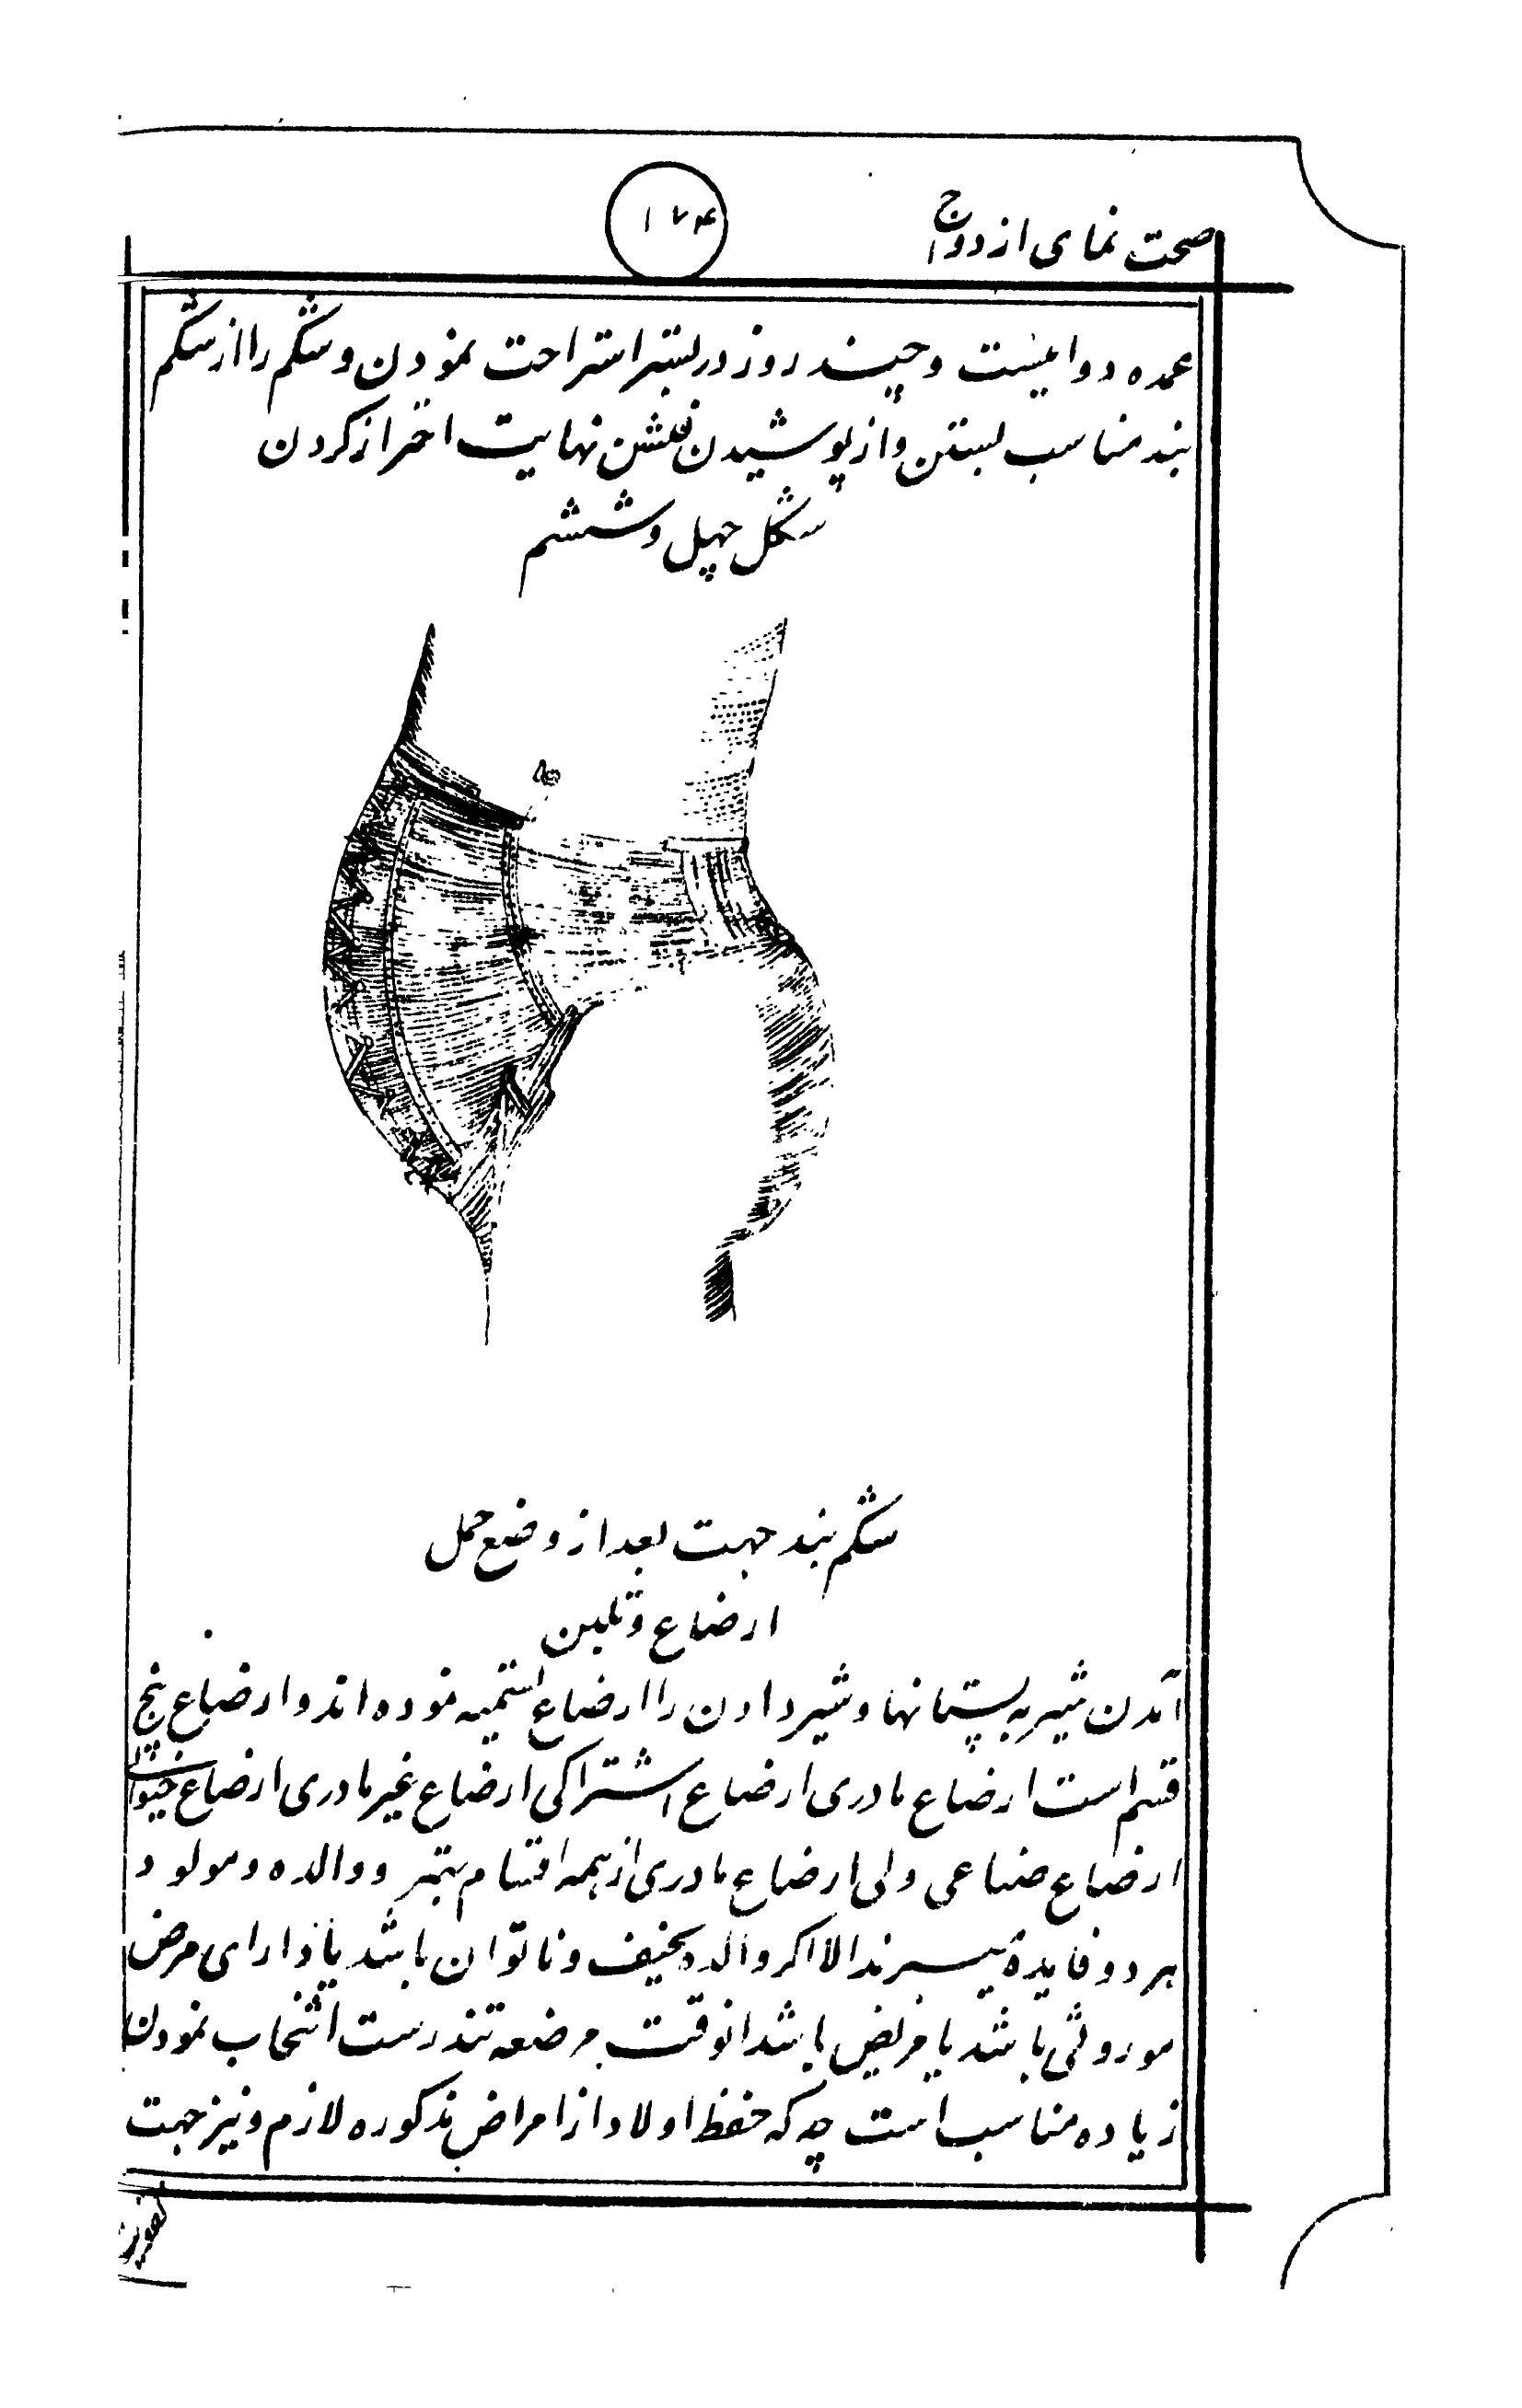 صحت نمای ازدواج
۱۷۴
عمده دوا اینست و چند روز در بستر استراحت نمودن و شکم را از شکم
بند مناسب بستن و از پوشیدن نهایت احتراز کردن
شکل چهل و ششم
شکم بند جهت بعد از وضع حمل
ارضاع و تلبین
آمدن شیر به پستانها و شیر دادن را ارضاع تسمیه نموده اند و ارضاع پنج
قسم است ارضاع مادری ارضاع اشتراکی ارضاع غیر مادری ارضاع حیوانی
ارضاع صناعی ولی ارضاع مادری از همه اقسام بهتر و والده و مولود
هر دو فایده میبرند الا اگر والده نحیف و ناتوان باشد یا دارای مرض
موروثی باشد یا مریض باشد انوقت مرضعه تندرست انتخاب نمودن
زیاده مناسب است چه که حفظ اولاد از امراض مذکوره لازم و نیز جهت